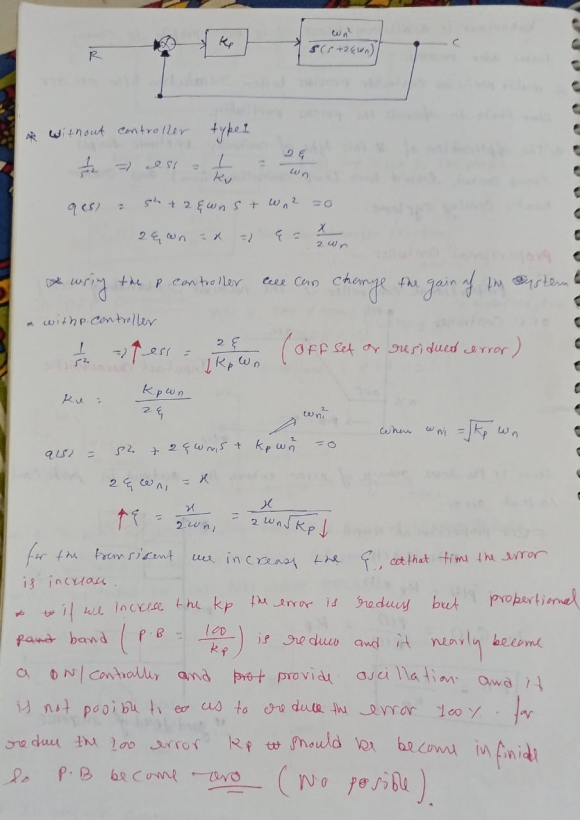 R
Kp
ωn²
s(s+2ξωn)
C
* without controller type1
1/s² => ess = 1/Kv = 2ξ/ωn
q(s) = s² + 2ξωns + ωn² = 0
2ξωn = x => ξ = x/2ωn
using the P controller we can change the gain of the system
- with p.controller
1/s² => ↑ess = 2ξ/↓Kpωn (OFF Set or residued error)
Kv = Kpωn/2ξ
ωn₁²
q(s) = s² + 2ξωns + Kpωn² = 0 when ωn₁ = √Kp ωn
2ξωn₁ = x
↑ξ = x/2ωn₁ = x/2ωn√Kp↓
for the transicent we increase the ξ, at that time the error
is increase.
* if we increse the Kp the error is reduces but propertional
band (P.B = 100/Kp) is reduce and it nearly become
a ON/controller and provide oscillation and it
is not posible to us to reduce the error 100%. for
reduce the 100 error Kp should be become infinide
So P.B become zero (No posible).